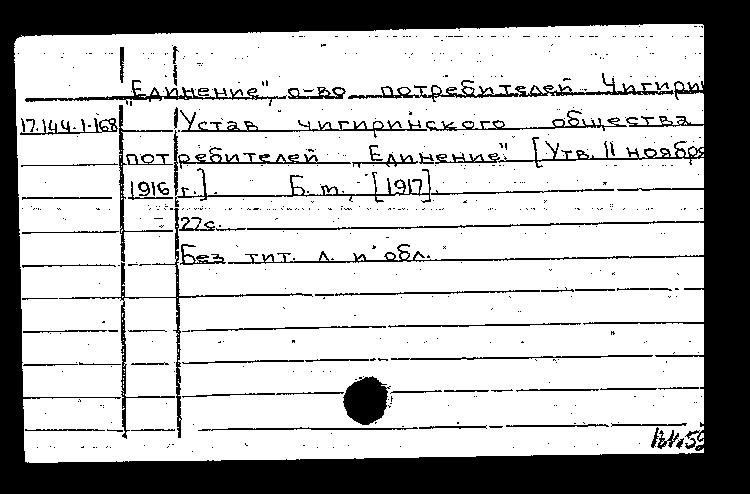 "Единение", о-во потребителей. Чигирин
17.144.1.168 Устав чигиринского общества
потребителей "Единение". [Утв. 11 ноября
1916 г.]. Б. т., [1917].
27с.
Без тит. л. и обл.